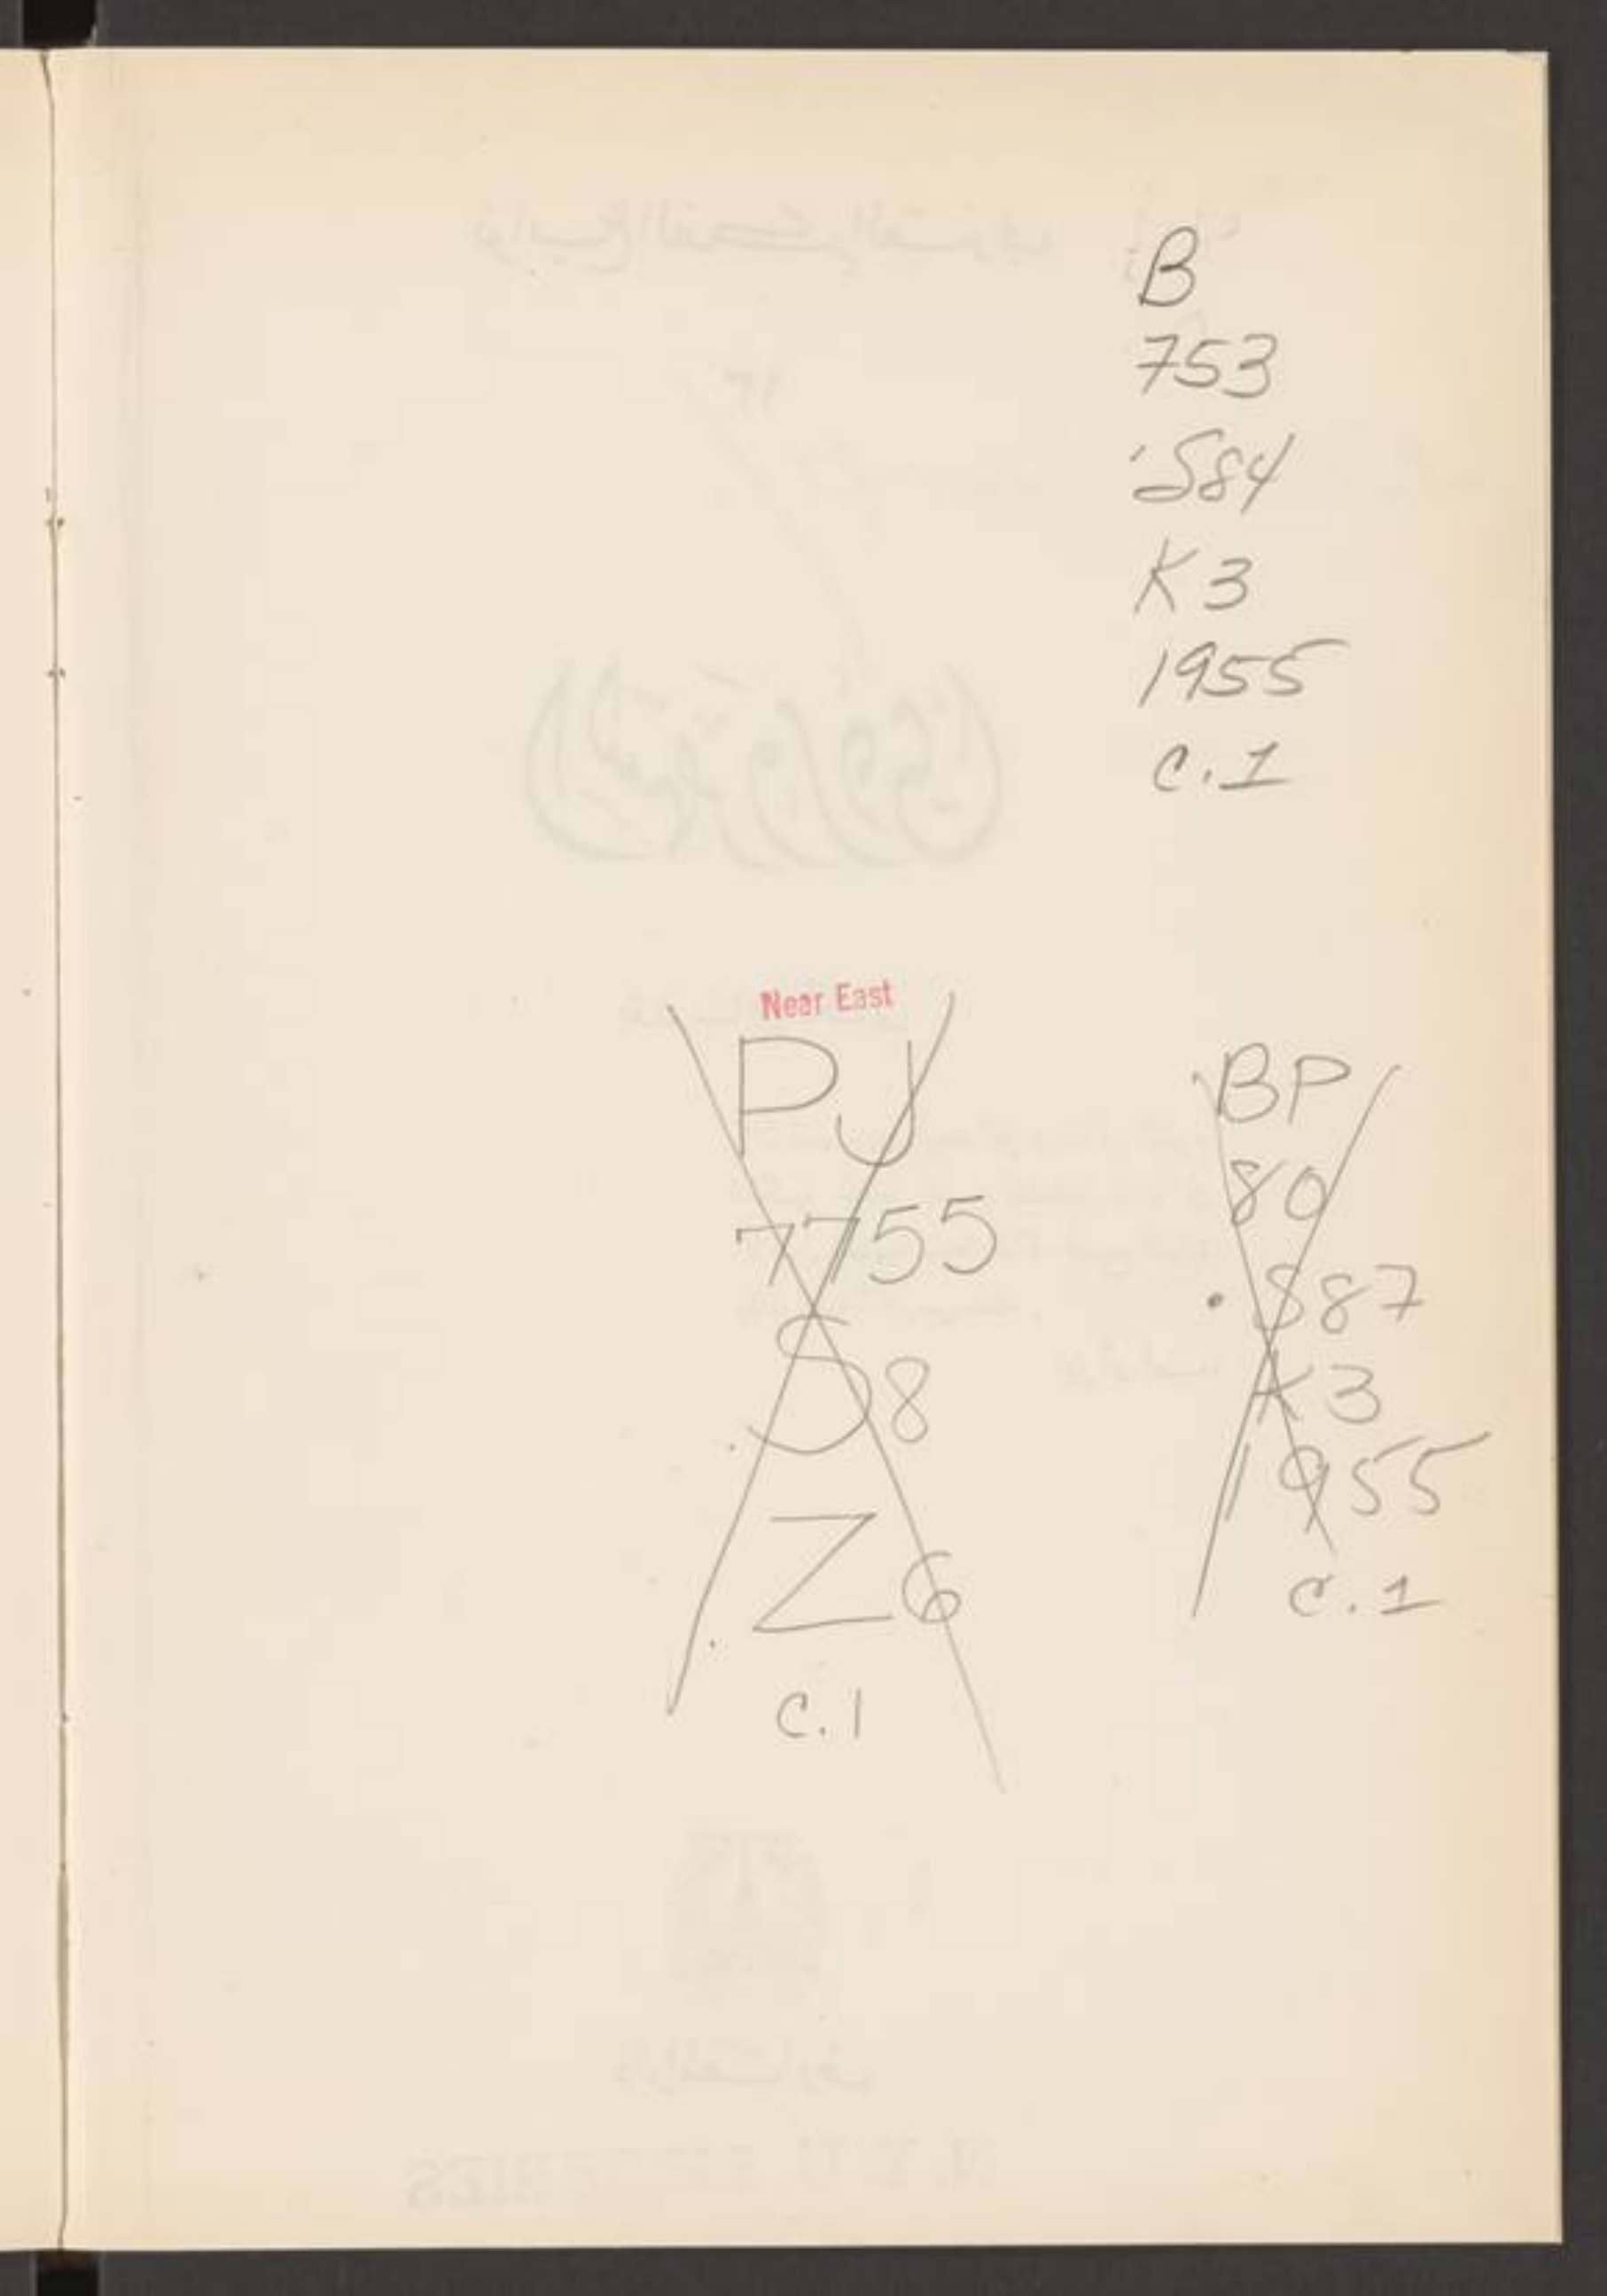 B
753
.S84
K3
1955
c.1
Near East
PJ
7755
.S8
.Z6
c.1
BP
80
.S87
K3
1955
c.1